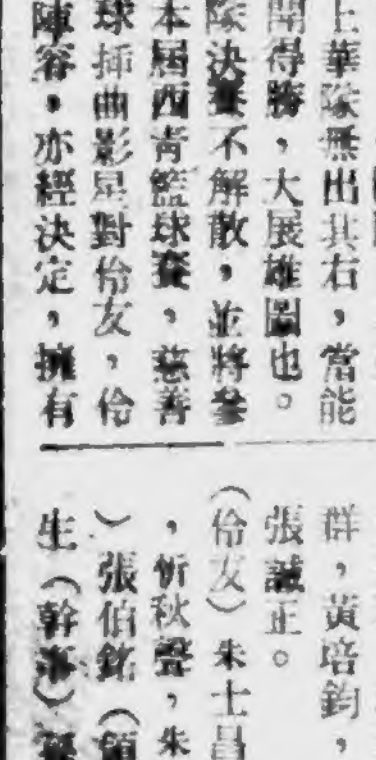 上華隊無出其右，當能
開得勝，大展雄圖也。
隊決賽不解散，並將參
本屆西青籃球賽，慈善
球插曲影星對伶友，伶
陣容，亦經決定，擁有
群，黃培鈞，
張誠正。
（伶友）朱士昌
，忻秋聲，朱
）張伯銘（顧
生（幹事）